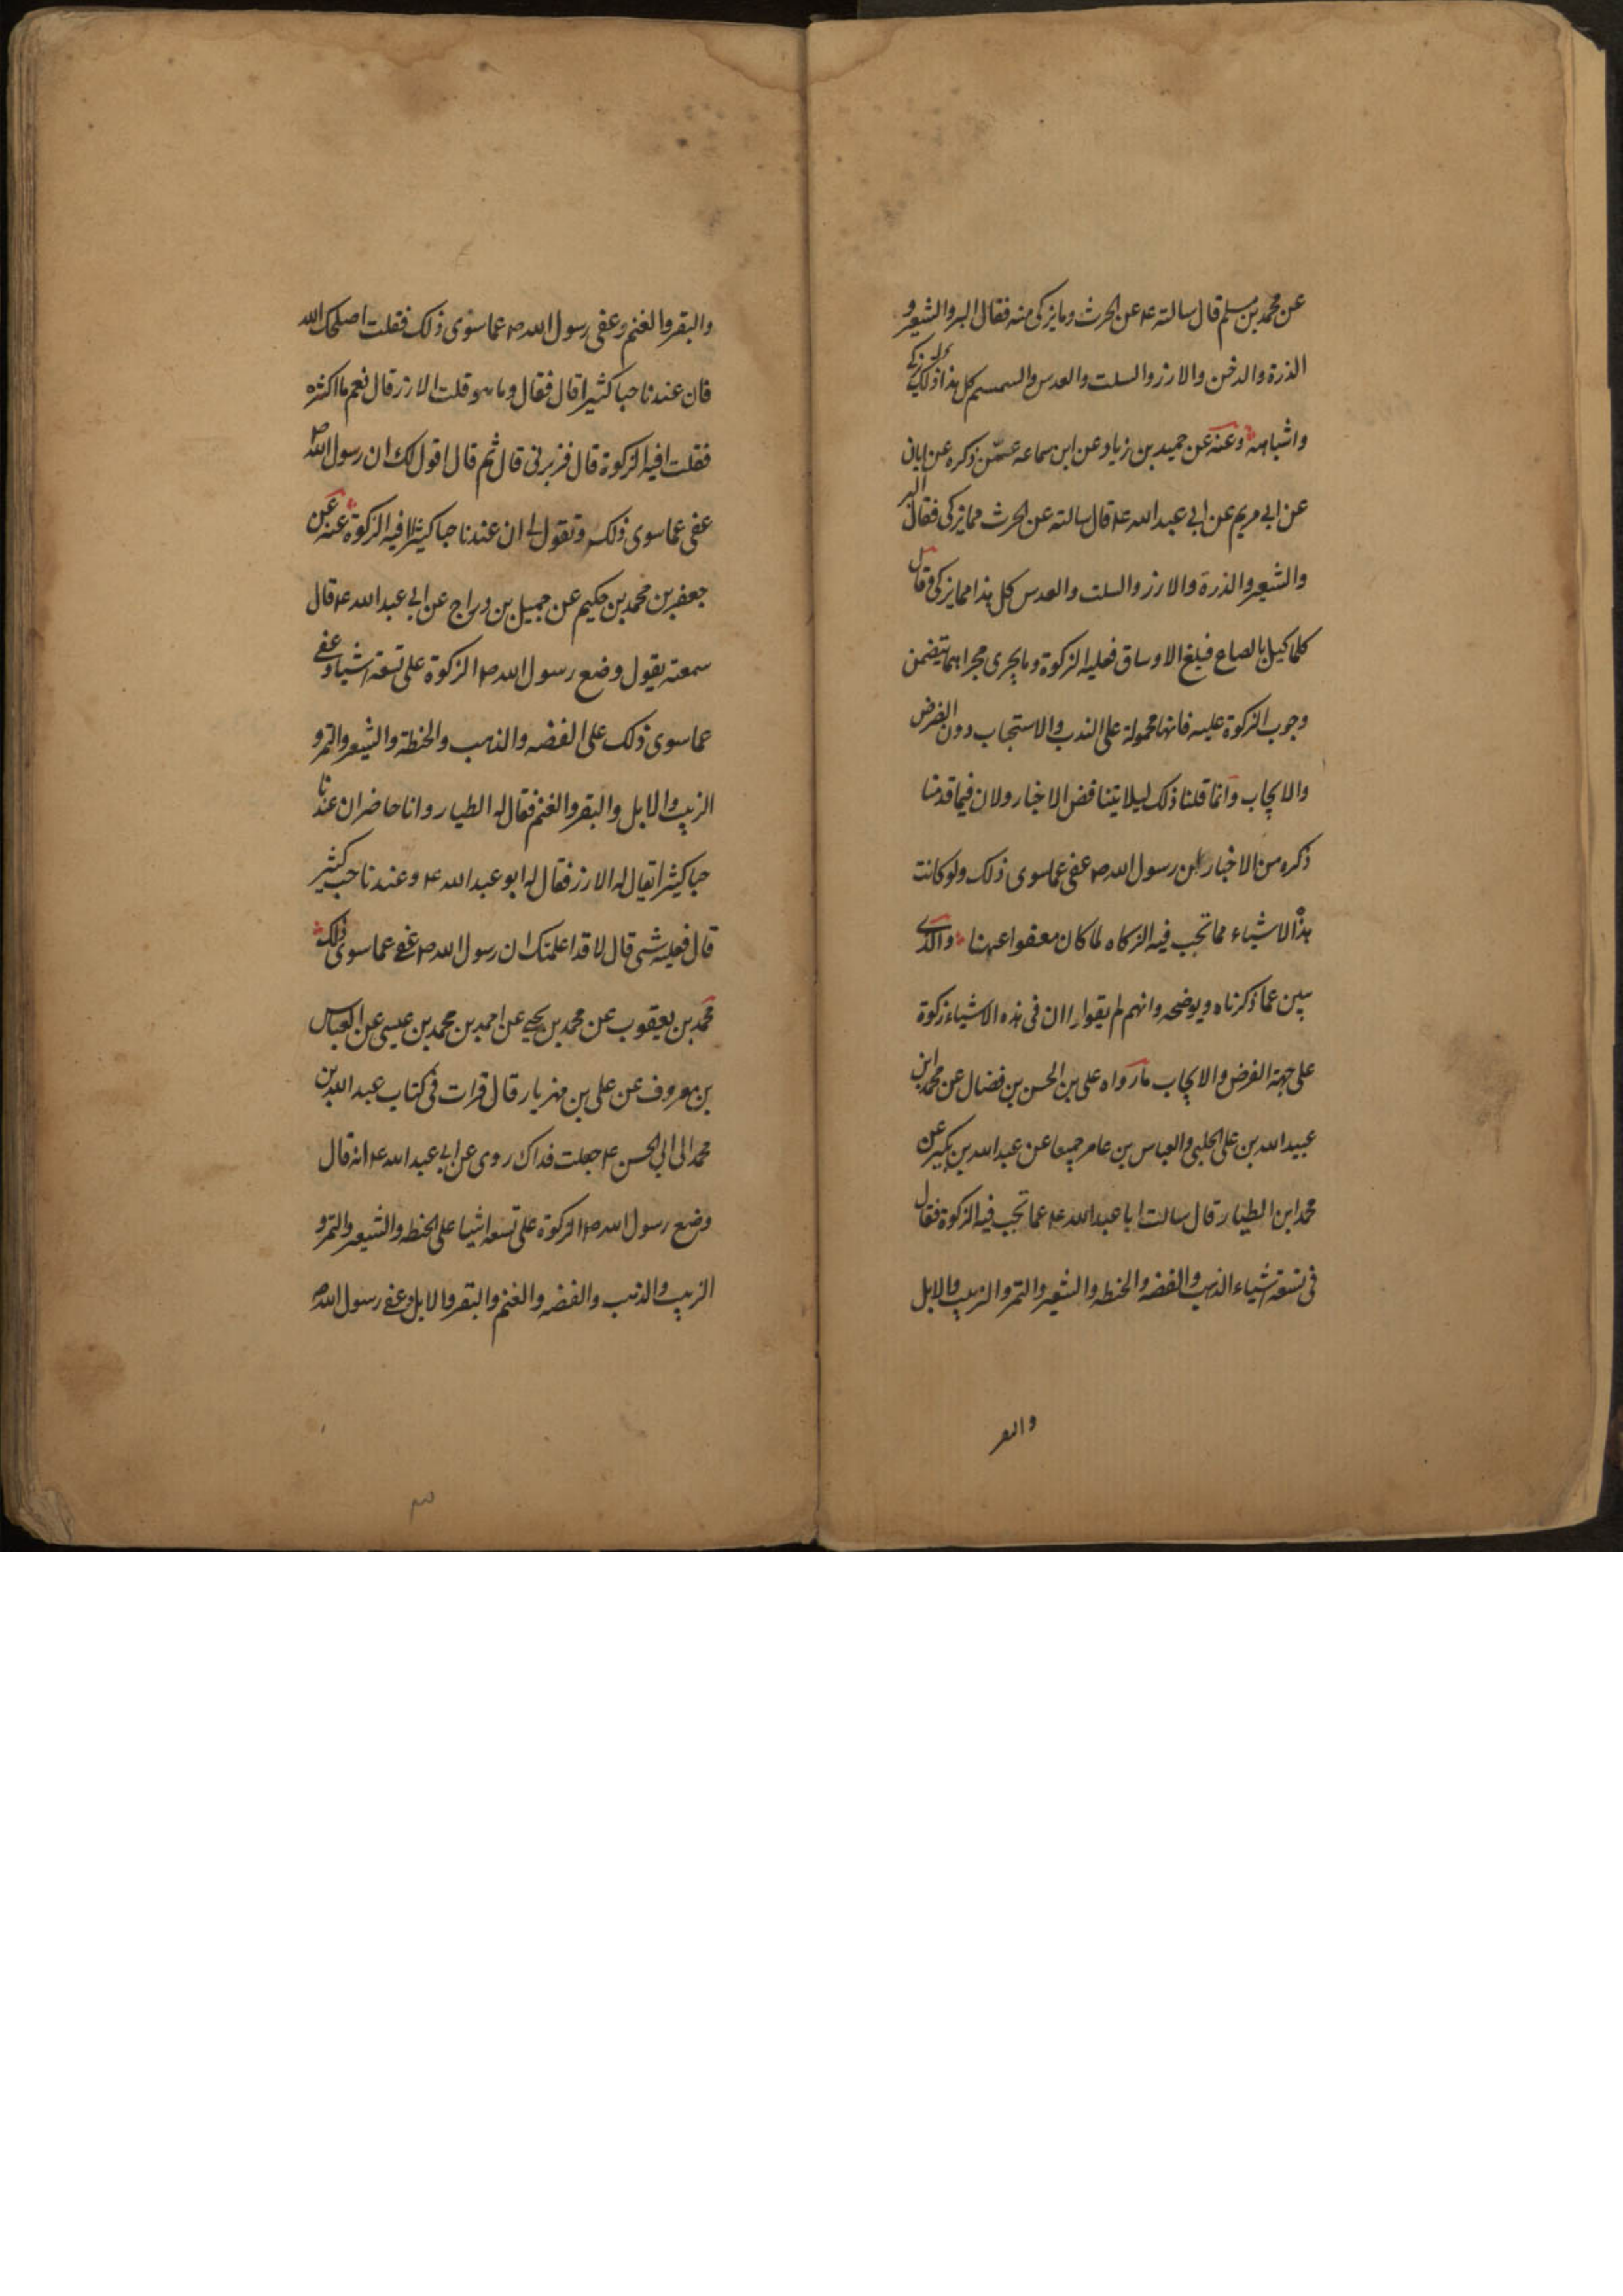 عن محمد بن مسلم قال سالته ع عن الحرث وما يزكى منه فقال البر والشعير و
الذرة والدخن والارز والسلت والعدس والسمسم كل هذا ذلك يزكى
واشباهه وعنه عن حميد بن زياد عن ابن سماعه عمّن ذكره عن ابان
عن ابي مريم عن ابي عبد الله ع قال سالته عن الحرث مما يزكى فقال البر
والشعير والذرة والارز والسلت والعدس كل هذا مما يزكى وقال
كلما كيل بالصاع فبلغ الاوساق فعليه الزكوة وما يجرى مجراهما يتضمن
وجوب الزكوة عليه فانها محمولة على الندب والاستحباب دون الفرض
والايجاب وانما قلنا ذلك ليلا يتناقض الاخبار ولان فيما قدمنا
ذكره من الاخبار ان رسول الله ص عفى عما سوى ذلك ولو كانت
هذه الاشياء مما تجب فيه الزكاه لما كان معفوا عنها والذى
يبين عما ذكرناه ويوضحه وانهم لم يقولوا ان فى هذه الاشياء زكوة
على جهة الفرض والايجاب ما رواه على بن الحسن بن فضال عن محمد ابن
عبيد الله بن على الحلبي والعباس بن عامر جميعا عن عبد الله بن بكير عن
محمد ابن الطيار قال سالت ابا عبد الله ع عما تجب فيه الزكوة فقال
فى تسعة اشياء الذهب والفضه والحنطه والشعير والتمر والزبيب والابل
والبقر
والبقر والغنم وعفى رسول الله ص عما سوى ذلك فقلت اصلحك الله
فان عندنا حبا كثيرا قال فقال وما هو قلت الارز قال نعم ما اكثره
فقلت افيه الزكوة قال فزبرنى قال ثم قال اقول لك ان رسول الله ص
عفى عما سوى ذلك وتقول لى ان عندنا حبا كثيرا افيه الزكوة عنه عن
جعفر بن محمد بن حكيم عن جميل بن دراج عن ابي عبد الله ع قال
سمعته يقول وضع رسول الله ص الزكوة على تسعة اشياء وعفى
عما سوى ذلك على الفضه والذهب والحنطة والشعير والتمر و
الزبيب والابل والبقر والغنم فقال له الطيار وانا حاضر ان عندنا
حبا كثيرا يقال له الارز فقال له ابو عبد الله ع وعندنا حب كثير
قال فعليه شى قال لا قد اعلمتك ان رسول الله ص عفى عما سوى ذلك
محمد بن يعقوب عن محمد بن يحيى عن احمد بن محمد بن عيسى عن العباس
بن معروف عن على بن مهزيار قال قرات فى كتاب عبد الله بن
محمد الى ابي الحسن ع جعلت فداك روى عن ابي عبد الله ع انه قال
وضع رسول الله ص الزكوة على تسعه اشيا على الحنطه والشعير والتمر و
الزبيب والذهب والفضه والغنم والبقر والابل وعفى رسول الله ص